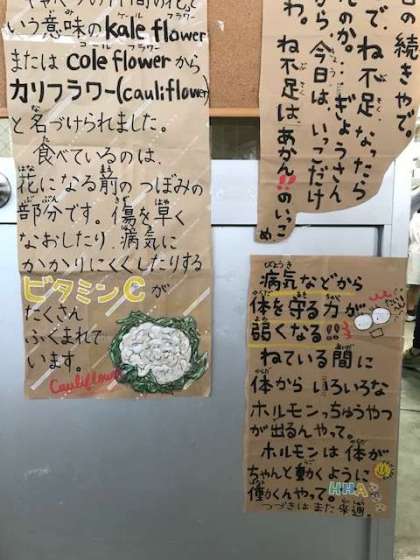 いう意味のkale flower
ケール フラワー
または cole flowerから
コール フラワー
カリフラワー(cauliflower)
と名づけられました。
食べているのは、
花になる前のつぼみの
部分です。傷を早く
なおしたり、病気に
かかりにくくしたりする
ビタミンCが
たくさん
ふくまれて
います。
Cauliflower
の続きやで
で、ね不足なったら
のか。ぎょうさん
から今日は、いっこだけ
わ。ね不足はあかん!!のいっこめ
病気などから
体を守る力が
弱くなる!!
ねている間に
体からいろいろな
ホルモンっちゅうやつ
が出るんやって。
ホルモンは体が
ちゃんと動くように
働くんやって。
つづきはまた来週。